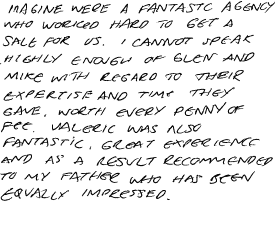 IMAGINE WERE A FANTASTC AGENCY
WHO WORKED HARD TO GET A
SALE FOR US. I CANNOT SPEAK
HIGHLY ENOUGH OF GLEN AND
MIKE WITH REGARD TO THEIR
EXPERTISE AND TIME THEY
GAVE. WORTH EVERY PENNY OF
FEE. VALERIE WAS ALSO
FANTASTIC. GREAT EXPERIENCE
AND AS A RESULT RECOMMENDED
TO MY FATHER WHO HAS BEEN
EQUALLY IMPRESSED.